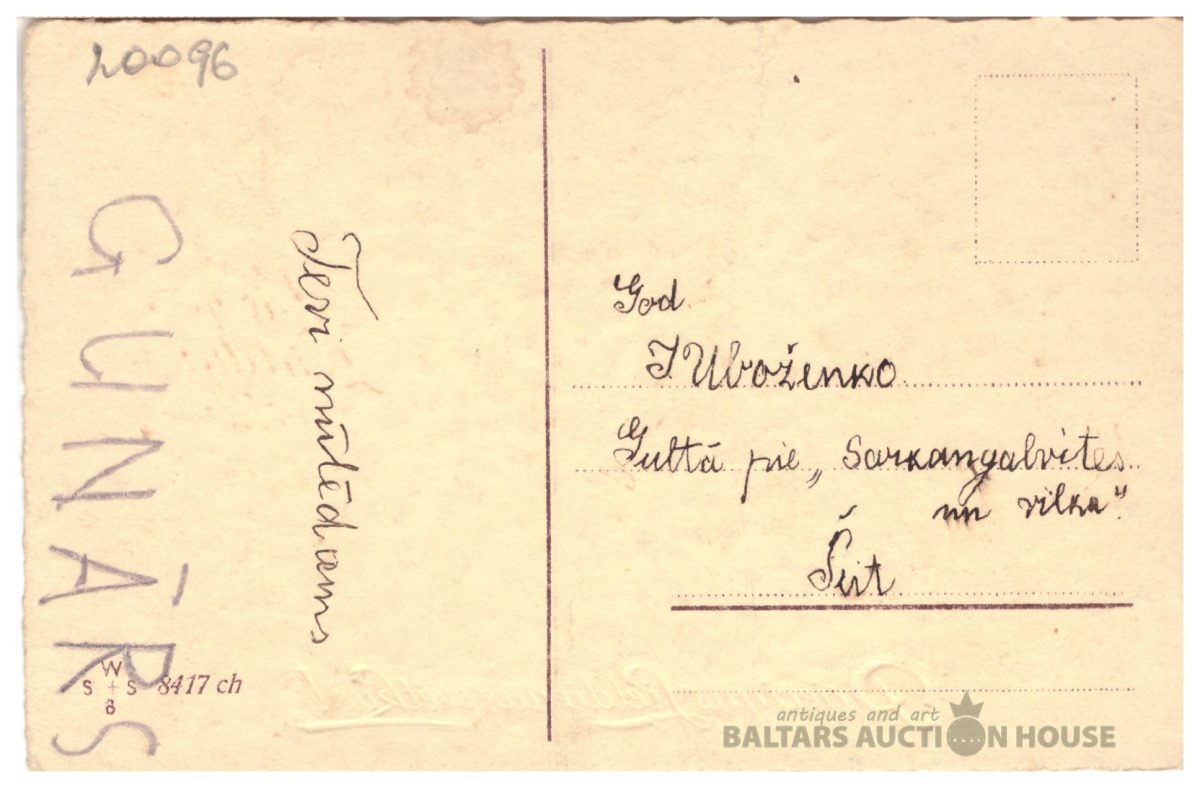 20096
Tevi mīlēdams
GUNĀRS
W
S + S
8
8417 ch
God.
J Uboženko
Gultā pie „Sarkangalvītes
un vilka"
Šeit
antiques and art
BALTARS AUCTION HOUSE